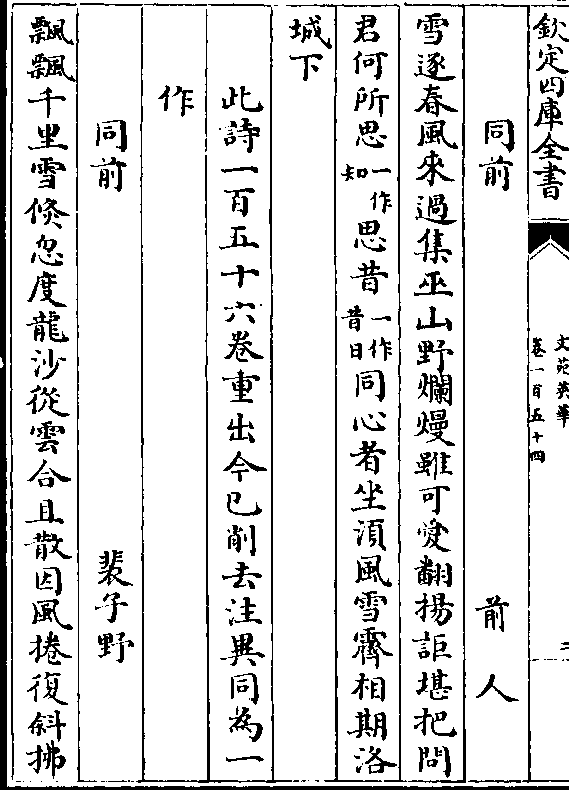 欽定四庫全書
文苑英華
卷一百五十四
二
同前 前人
雪逐春風來過集巫山野爛熳雖可愛翻揚詎堪把問
君何所思一作知思昔一作昔日同心者坐湏風雪霽相期洛
城下
此詩一百五十六卷重出今已削去注異同為一
作
同前 裴子野
飄飄千里雪倐忽度龍沙從雲合且散因風捲復斜拂